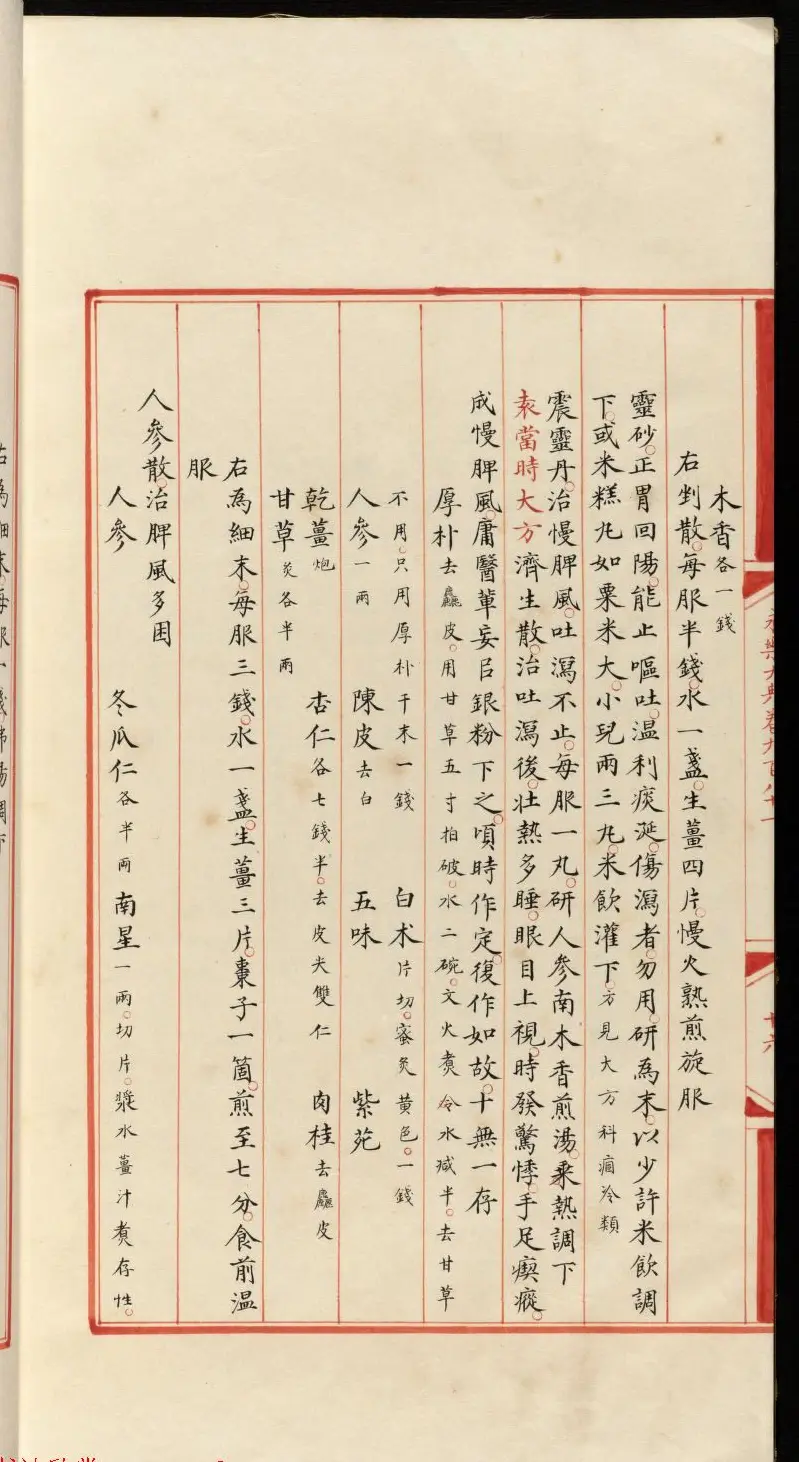 木香各一錢
右剉散。每服半錢。水一盞。生薑四片。慢火熟煎旋服
靈砂。正胃回陽。能止嘔吐。温利痰涎。傷瀉者。勿用。研為末。以少許米飲調
下。或米糕丸如粟米大。小兒兩三丸。米飲灌下。方見大方科痼冷類
震靈丹。治慢脾風。吐瀉不止。每服一丸。研人參南木香煎湯。乘熱調下
袁當時大方濟生散。治吐瀉後。壯熱多睡。眼目上視。時發驚悸。手足瘈瘲。
成慢脾風。庸醫輩妄㠯銀粉下之。頃時作定。復作如故。十無一存
厚朴去麤皮。用甘草五寸拍破。水二碗。文火煮令水減半。去甘草
不用。只用厚朴干末一錢 白朮片切。蜜炙黄色。一錢
人參一兩 陳皮去白 五味 紫菀
乾薑炮 杏仁各七錢半。去皮尖雙仁 肉桂去麤皮
甘草炙各半兩
右為細末。每服三錢。水一盞。生薑三片。棗子一箇。煎至七分。食前温
服
人參散。治脾風多困
人參 冬瓜仁各半兩 南星一兩。切片。漿水薑汁煮存性。
永樂大典卷九百八十一
廿六
右為細末。每服一錢